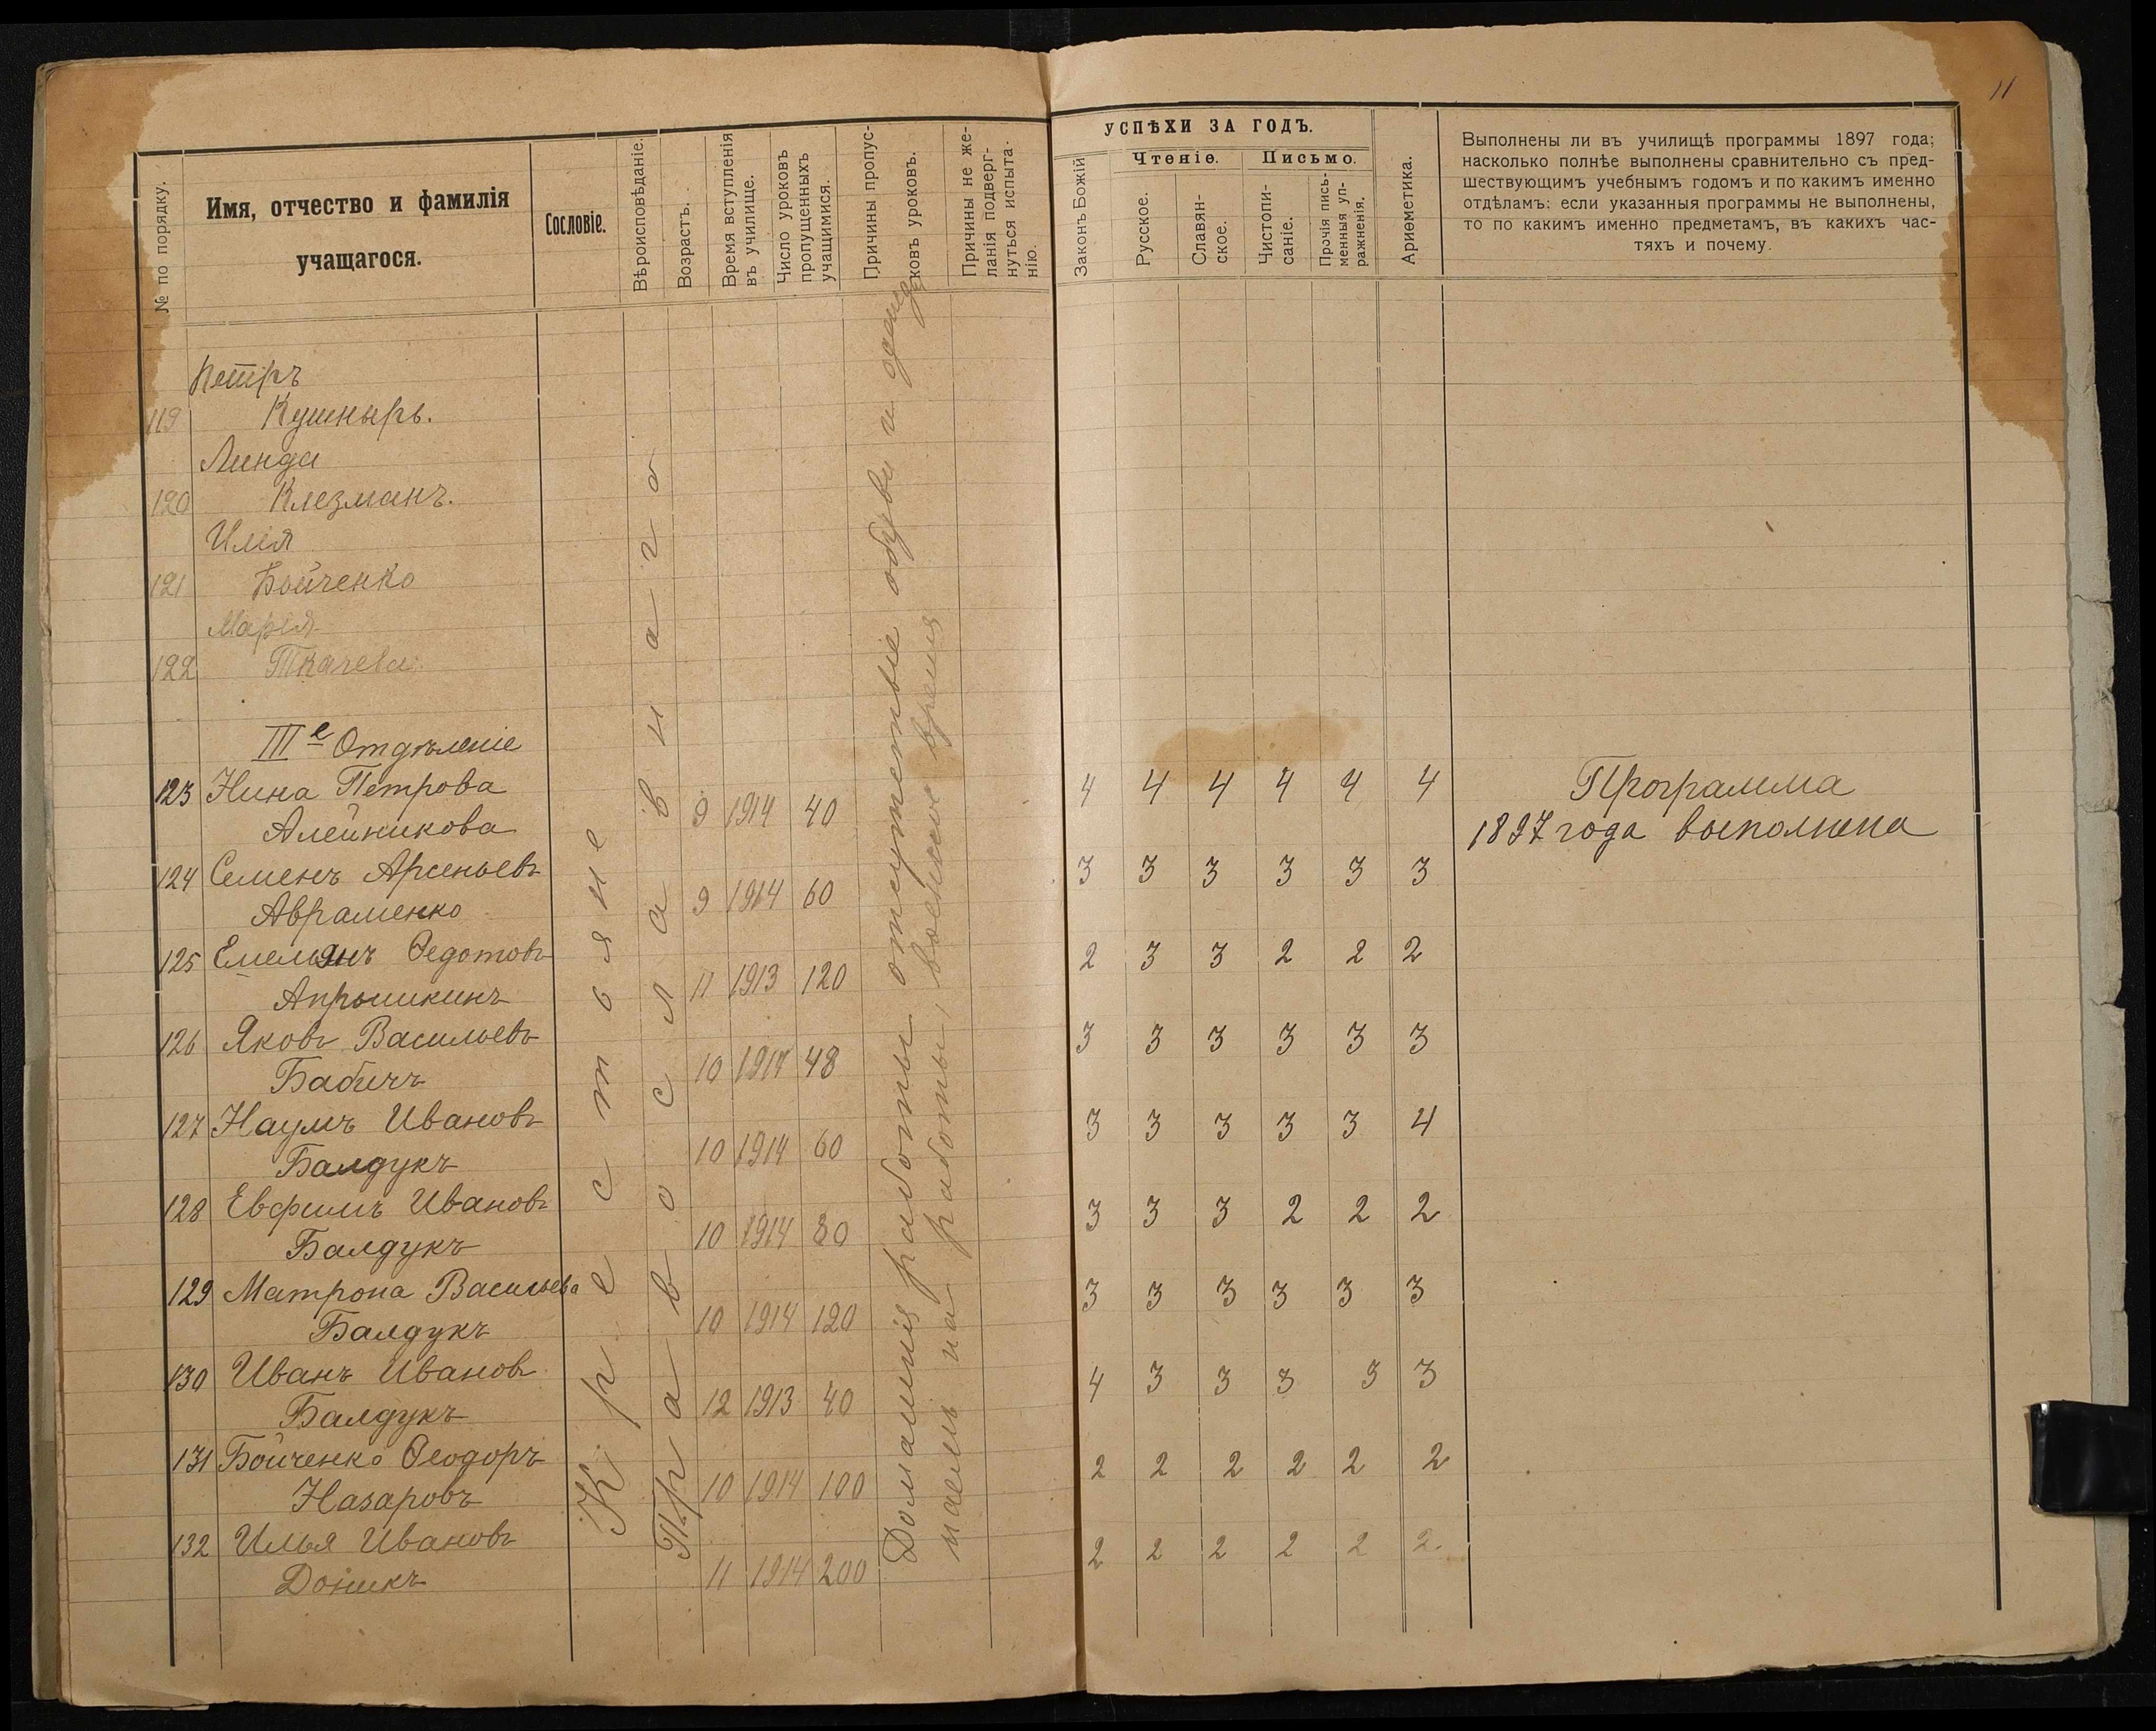 11
№ по порядку.
Имя, отчество и фамилія
учащагося.
Сословіе.
Вѣроисповѣданіе.
Возрастъ.
Время вступленія
въ училище.
Число уроковъ
пропущенныхъ
учащимися.
Причины пропус-
ковъ уроковъ.
Причины не же-
ланія подверг-
нуться испыта-
нію.
УСПѢХИ ЗА ГОДЪ.
Законъ Божій
Чтеніе.
Письмо.
Русское.
Славян-
ское.
Чистопи-
саніе.
Прочія пись-
менныя уп-
ражненія.
Ариѳметика.
Выполнены ли въ училищѣ программы 1897 года;
насколько полнѣе выполнены сравнительно съ пред-
шествующимъ учебнымъ годомъ и по какимъ именно
отдѣламъ: если указанныя программы не выполнены,
то по какимъ именно предметамъ, въ какихъ час-
тяхъ и почему.
Петръ
119 Кушныръ.
Линда
120 Клезманъ.
Илія
121 Бойченко
Марія
122 Ткачева
IIIе Отдѣленіе
123 Нина Петрова 4 4 4 4 4 4 Программа
Алейникова 9 1914 40 1897 года выполнена
124 Семенъ Арсеньевъ 3 3 3 3 3 3
Авраменко 9 1914 60
125 Емельянъ Ѳедотовъ 2 3 3 2 2 2
Апрышкинъ 11 1913 120
126 Яковъ Васильевъ 3 3 3 3 3 3
Бабичъ 10 1914 48
127 Наумъ Ивановъ 3 3 3 3 3 4
Балдукъ 10 1914 60
128 Евфимъ Ивановъ 3 3 3 2 2 2
Балдукъ 10 1914 80
129 Матрона Васильева 3 3 3 3 3 3
Балдукъ 10 1914 120
130 Иванъ Ивановъ 4 3 3 3 3 3
Балдукъ 12 1913 40
131 Бойченко Ѳеодоръ 2 2 2 2 2 2
Назаровъ 10 1914 100
132 Илья Ивановъ 2 2 2 2 2 2.
Доникъ 11 1914 200
Крестьяне
Православнаго
Домашнія работы отсутствіе обуви и одежд
наемъ на работы, военное время